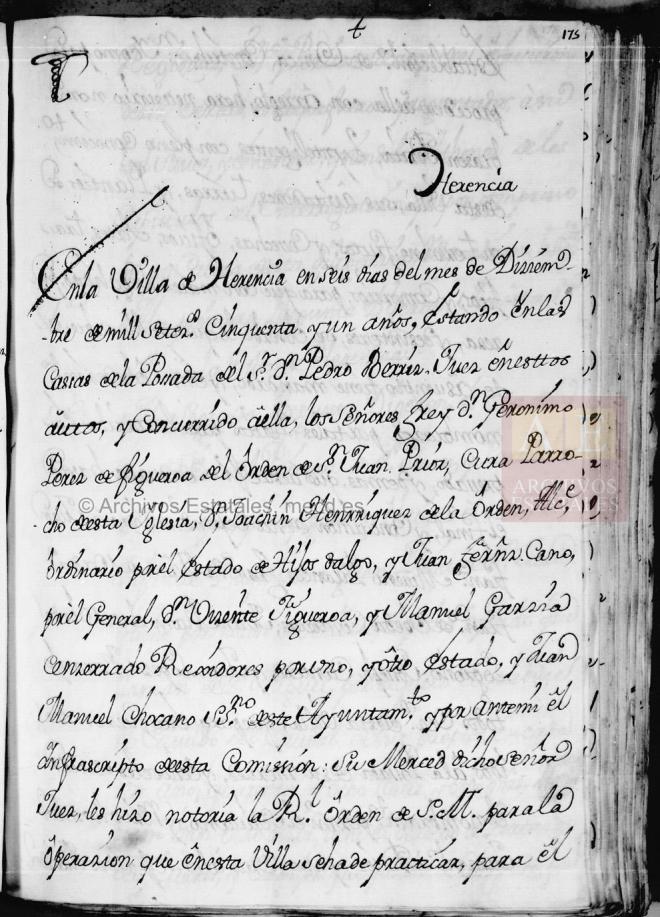 175
Herencia
Enla Villa de Herencia en seis dias del mes de Diziem-
-bre de mill Setez.s Cinquenta y un años, Estando en las
Casas dela Posada del S.r D.n Pedro Berriz, Juez en esttos
auttos, y Concurrido â ella, los Señores frey D.n Geronimo
Perez de figueroa del Orden de S.n Juan, Prior, Cura Parro-
-cho desta Yglesia, D.n Joachin Henrriquez de la Orden, Alc.e
ôrdinario pr èl Estado de Hijos dalgo, y Juan fêrnz. Cano,
pr èl General, D.n Vizente Figueroa, y Manuel Garzia
Conzerrado Rexidores por uno, y otro Estado, y Juan
Manuel Chocano SS.no deste Ayuntam.to y por antemi êl
ynfrascripto desta Comission: Su Merced dicho Señor
Juez, les hizo notoria la R.l Orden de S.M. para la
ôperazion que ênesta Villa sehade practicar, para êl
© Archivos Estatales, mecd.es
AE
ARCHIVOS
ESTATALES